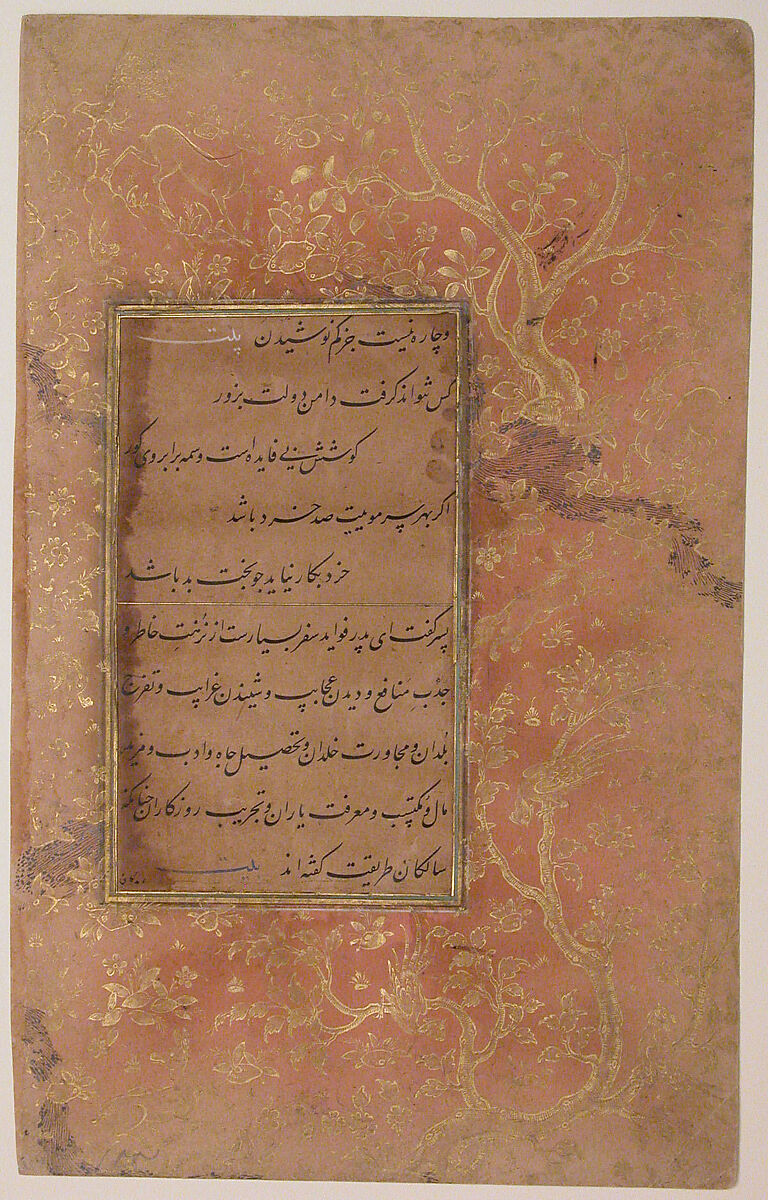 و چاره نیست جز کم نوشیدن بیت
کس نتواند گرفت دامن دولت بزور
کوشش بی فایده است وسمه بر ابروی کور
اگر بهر سر مویت صد خرد باشد
خرد بکار نیاید چو بخت بد باشد
پسر گفت ای پدر فواید سفر بسیارست از نزهت خاطر و
جذب منافع و دیدن عجایب و شنیدن غرایب و تفرج
بلدان و مجاورت خلان و تحصیل جاه و ادب و مزید
مال و مکتسب و معرفت یاران و تجربت روزگاران چنانکه
سالکان طریقت گفته اند بیت